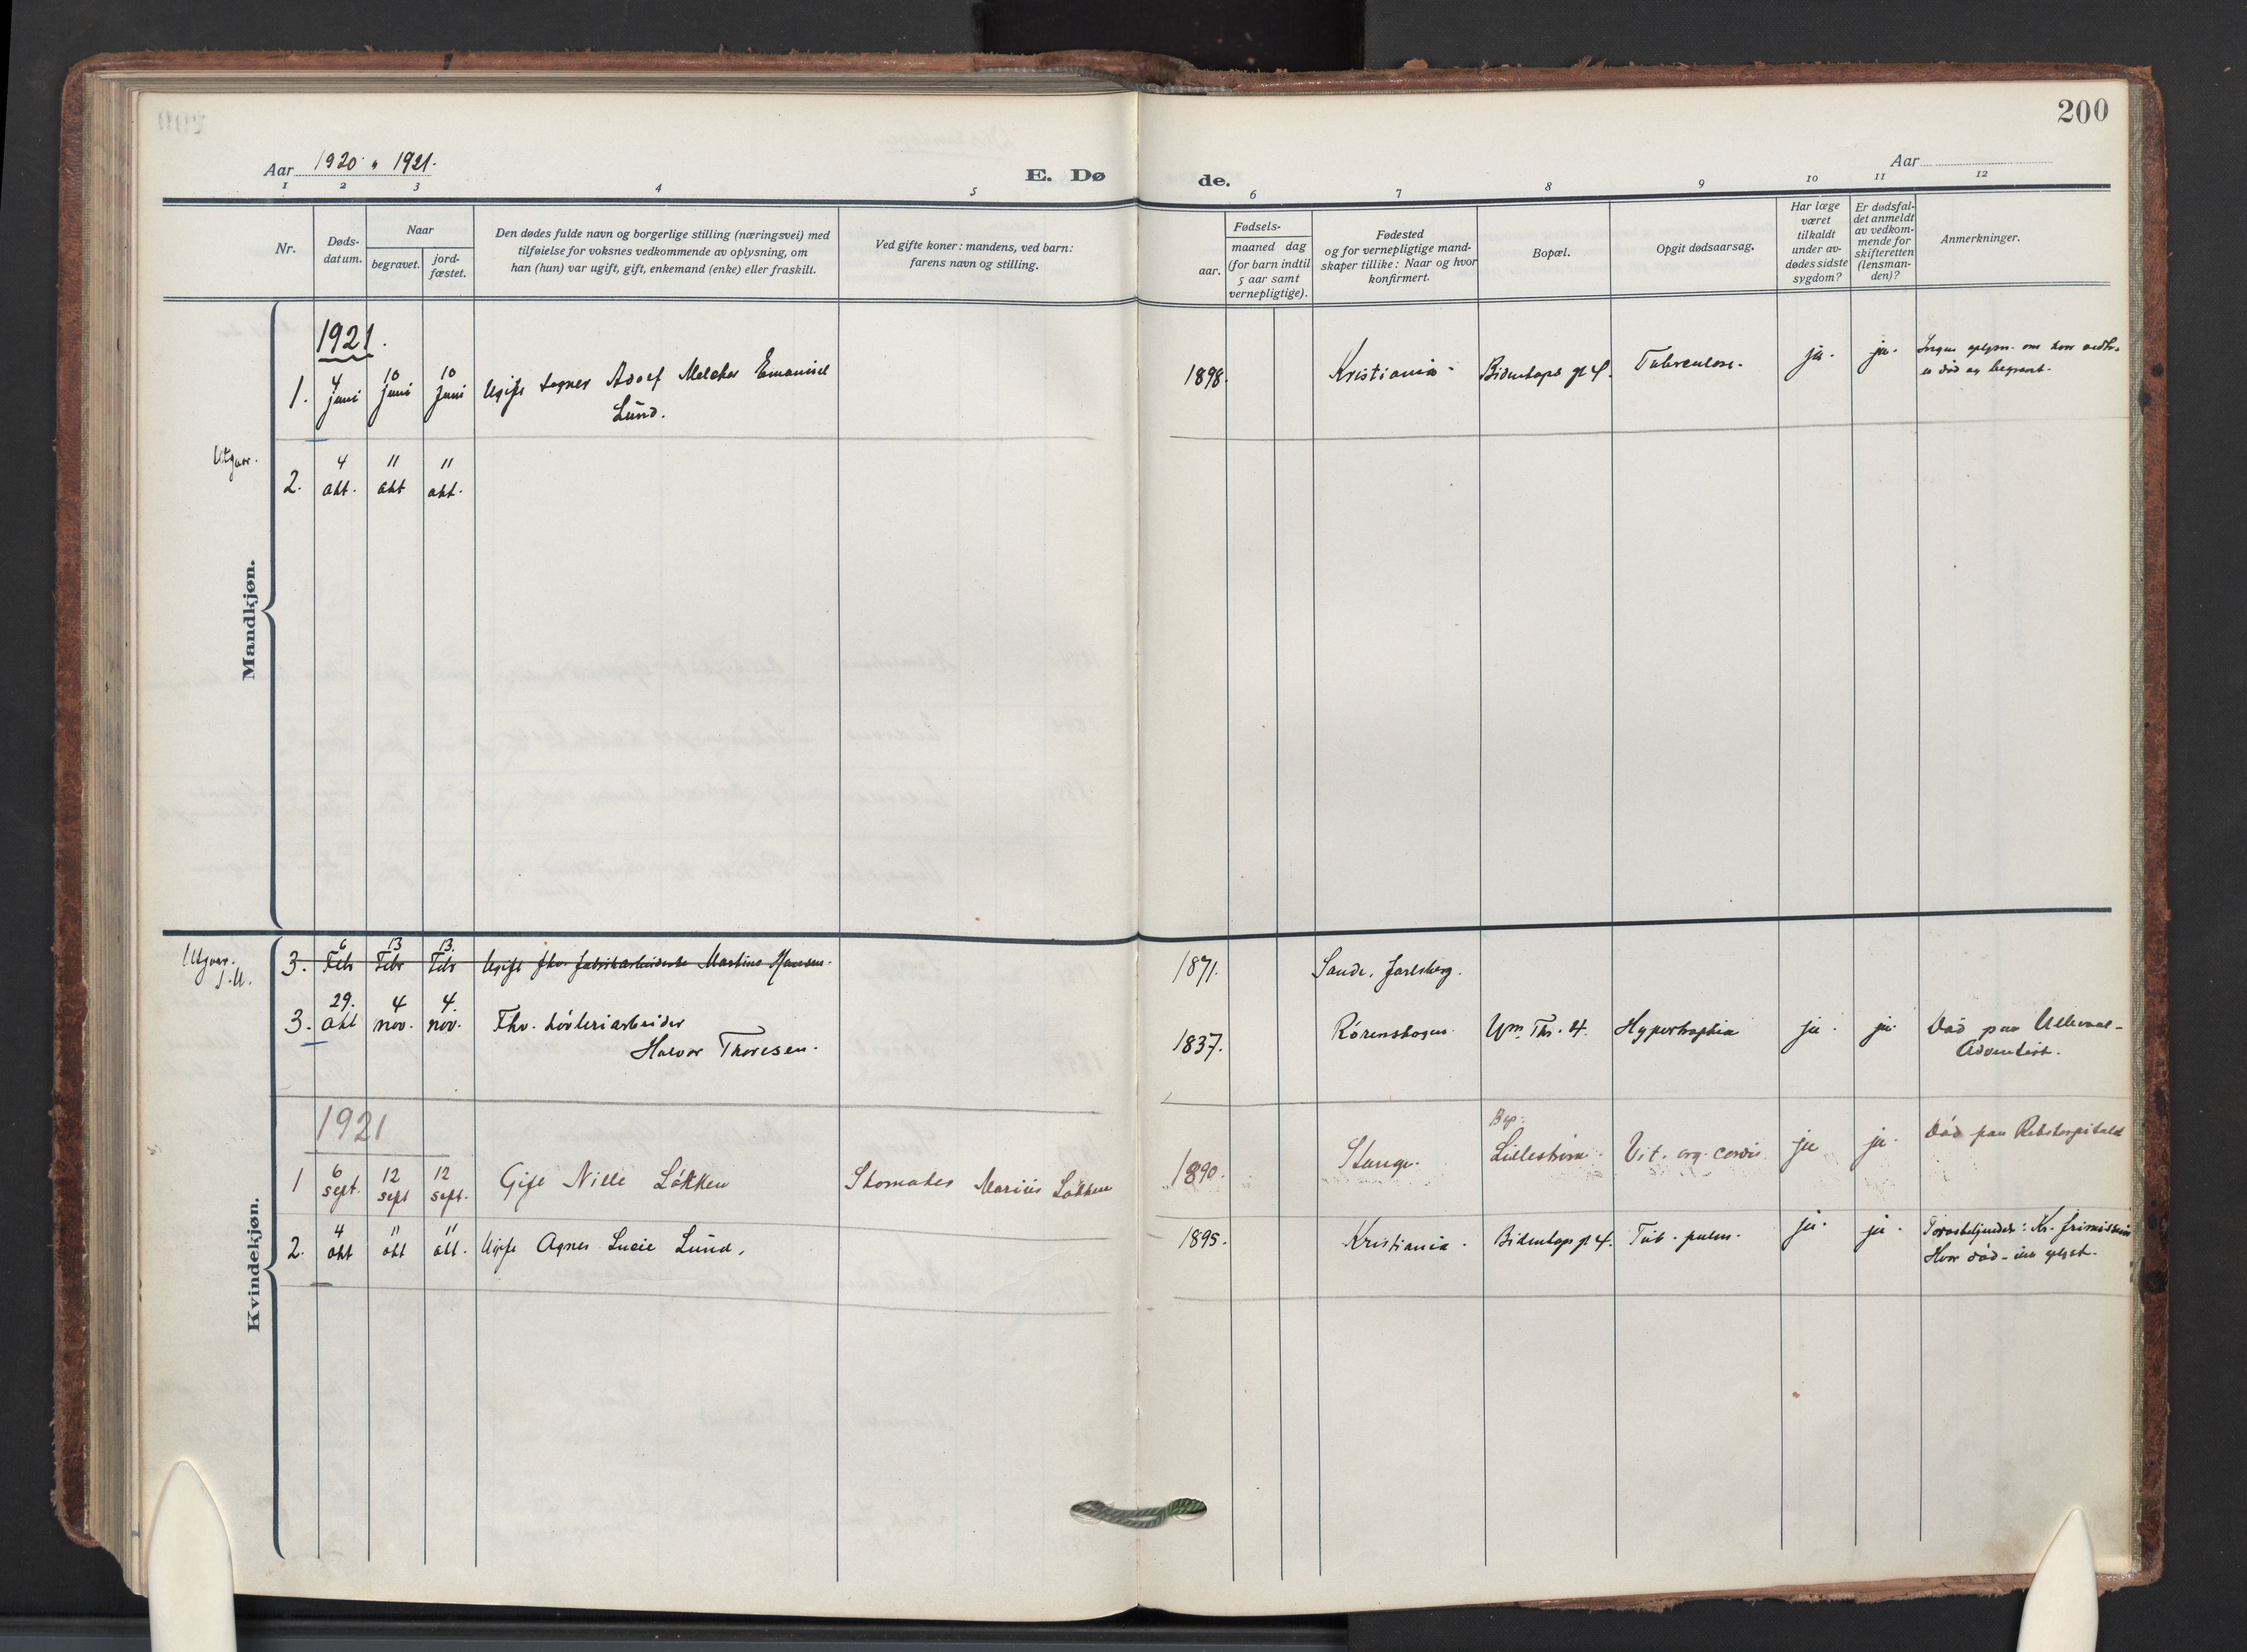 200
Aar 1920 " 1921.
Aar
E. Dø de.
1 2 3 4 5 6 7 8 9 10 11 12
Nr.
Døds-
datum.
Naar
begravet.
jord-
fæstet.
Den dødes fulde navn og borgerlige stilling (næringsvei) med
tilføielse for voksnes vedkommende av oplysning, om
han (hun) var ugift, gift, enkemand (enke) eller fraskilt.
Ved gifte koner: mandens, ved barn:
farens navn og stilling.
Fødsels-
aar.
maaned dag
(for barn indtil
5 aar samt
vernepligtige).
Fødested
og for vernepligtige mand-
skaper tillike: Naar og hvor
konfirmert.
Bopæl.
Opgit dødsaarsag.
Har læge
været
tilkaldt
under av-
dødes sidste
sygdom?
Er dødsfal-
det anmeldt
av vedkom-
mende for
skifteretten
(lensman-
den)?
Anmerkninger.
Mandkjøn.
1921.
1. 4 juni 10 juni 10 juni Ugift Adolf Melchor Emanuel
Lund.
1898. Kristiania. 4. Tuberculose. ja. ja. Ingen oplysn. om hvor
er død og begravet.
Utgaar.
2. 4 okt. 11 okt 11 okt.
Kvindekjøn.
Utgaar.
3. 6 Febr 13 Febr 13. Febr Ugift fhv. fabrikarbeiderske Martine Hansen. 1871. Sande, Jarlsberg.
3. 29. okt 4 nov. 4. nov. Fhv. arbeider
Halvor Thoresen.
1837. 4. Hypertrophia ja. ja. Død paa Ullevaal -
Adventist.
1921
1 6 sept. 12 sept 12 sept. Gift Nille Løkken Marius Løkken 1890. Stange. Lillestrøm. Vit. org. cordis. ja ja. Død paa Rikshospitalet
2. 4 okt 11 okt 11 okt. Ugift Agnes Lucie Lund, 1895. Kristiania. 4. Tub. pulm. ja. ja.
Hvor død -